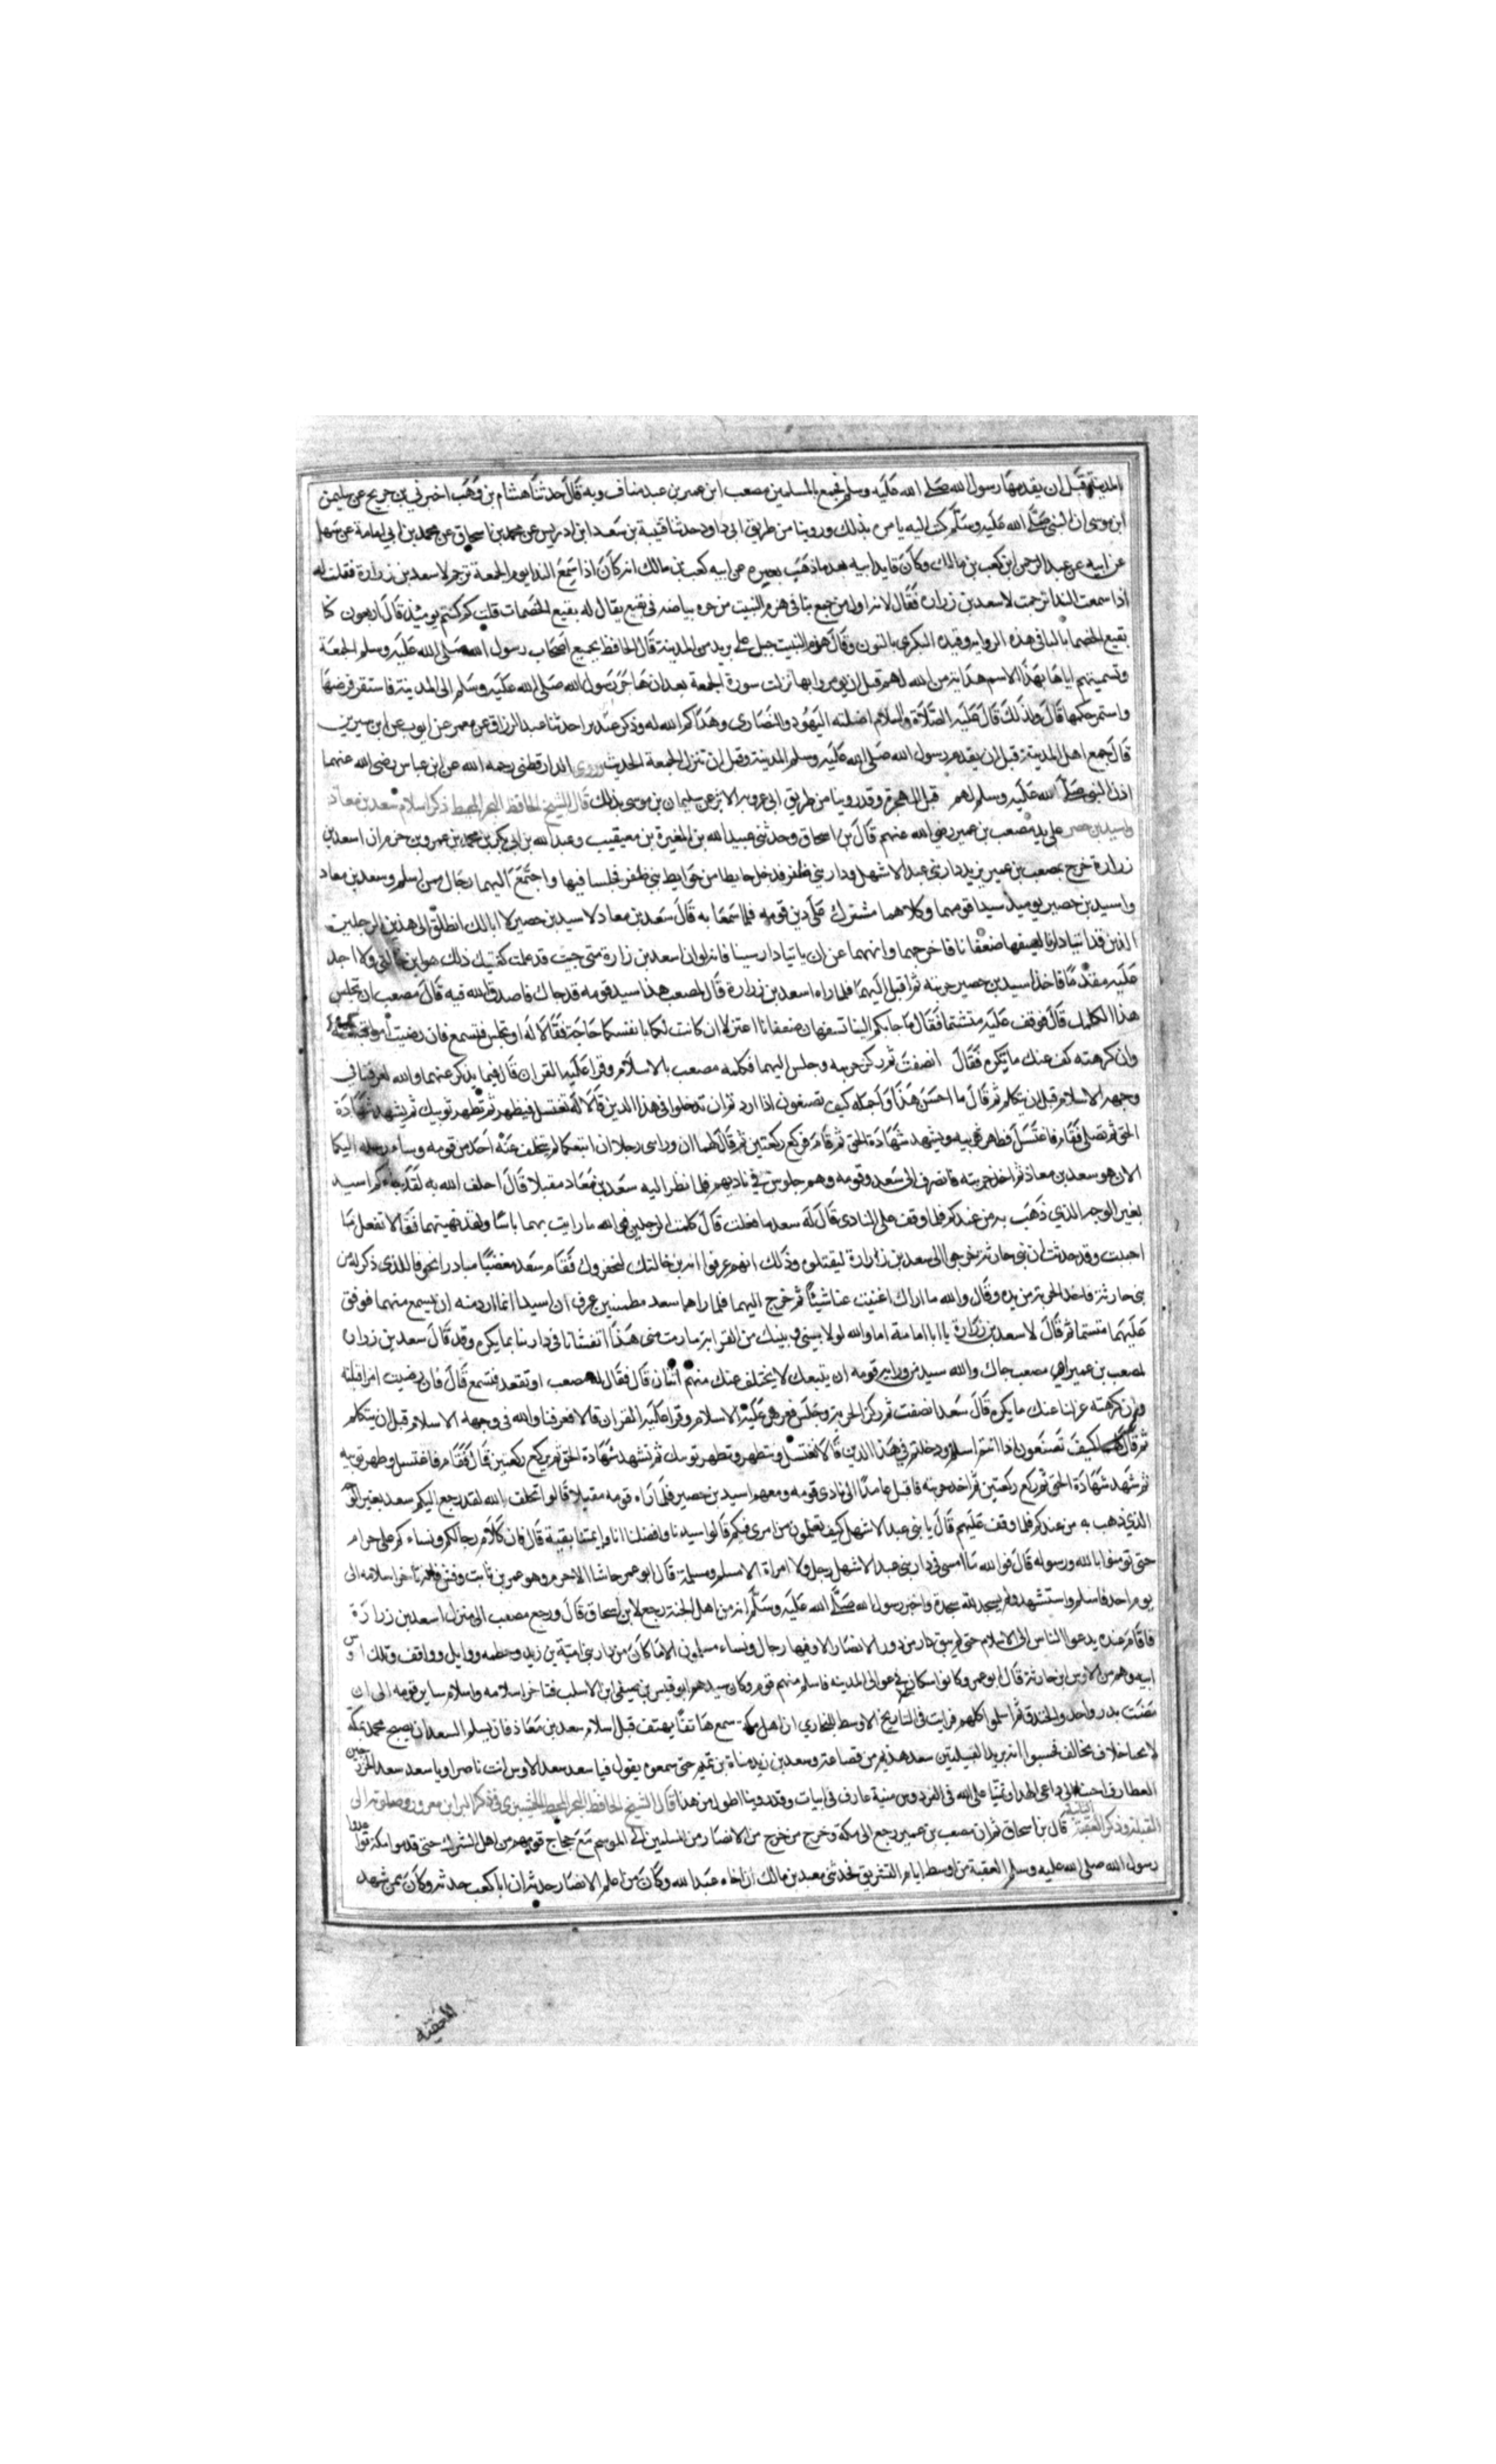 المدينة قبل ان يقدمها رسول الله صلى الله عليه وسلم فجمع بالمسلمين مصعب ابن عمير بن عبد مناف وبه قال حدثنا هشام بن وهب اخبرني بن جريج عن سليمن
ابن موسى ان النبي صلى الله عليه وسلم كتب اليه يامره بذلك وروينا من طريق ابي داود حدثنا قتيبة بن سعد ابن ادريس عن محمد بن اسحاق عن محمد بن ابي امامة عن سهل
عن ابيه عن عبد الرحمن ابن كعب بن مالك وكان قايد ابيه بعد ما ذهب بصره عن ابيه كعب بن مالك انه كان اذا سمع الندا يوم الجمعة ترحم لاسعد بن زرارة فقلت له
اذا سمعت الندا ترحمت لاسعد بن زرارة فقال لانه اول من جمع بنا في هزم النبيت من حره بياضه في نقيع يقال له بقيع الخضمات قلت كم كنتم يوميذ قال اربعون كا
بقيع الخضمات بالبا في هذه الرواية وقيده البكري بالنون وقال هزم النبيت جبل على بريد من المدينة قال الحافظ تجميع اصحاب رسول الله صلى الله عليه وسلم الجمعة
وتسميتهم اياها بهذا الاسم هداية من الله لهم قبل ان يومروا بها نزلت سورة الجمعة بعد ان هاجر رسول الله صلى الله عليه وسلم الى المدينة فاستقر فرضها
واستمر حكمها قال ولذلك قال عليه الصلاة والسلام اضلته اليهود والنصارى وهداكم الله له وذكر عبد بن احدثنا عبد الرزاق عن معمر عن ايوب عن ابن سيرين
قال جمع اهل المدينة قبل ان يقدم رسول الله صلى الله عليه وسلم المدينة وقبل ان تنزل الجمعة الحديث وروى الدارقطني رحمه الله عن ابن عباس رضي الله عنهما
اذن النبي صلى الله عليه وسلم لهم قبل الهجرة وقد روينا من طريق ابي عروبه الاثر عن سليمان بن موسى بذلك قال الشيخ الحافظ البحر المحيط ذكر اسلام سعد بن معاد
واسيد بن حصير على يد مصعب بن عمير رضي الله عنهم قال بن اسحاق وحدثني عبيد الله بن المغيرة بن معيقيب وعبد الله بن ابي بكر بن محمد بن عمرو بن حزم ان اسعد بن
زرارة خرج بمصعب بن عمير يريد دار بني عبد الاشهل ودار بني ظفر فدخل حايطا من حوايط بني ظفر فجلسا فيها واجتمع اليهما رجال ممن اسلم وسعد بن معاد
واسيد بن حصير يوميد سيدا قومهما وكلاهما مشرك على دين قومه فلما سمعا به قال سعد بن معاد لاسيد بن حصير لا ابالك انطلق الى هذين الرجلين
الذين قد اتيا دارنا ليسفها ضعفانا فاخرجهما وانههما عن ان ياتيا دارينا فانه لولا ان اسعد بن زرارة مني حيت قد علمت كفيتك ذلك هو ابن خالتي ولا اجد
عليه مقدما فاخذ اسيد بن حصير حربته ثم اقبل اليهما فلما راه اسعد بن زرارة قال لمصعب هذا سيد قومه قد جاك فاصدق الله فيه قال مصعب ان تجلس
هذا اكلمه قال فوقف عليه متشتما فقال ما جابكم الينا تسفهان ضعفانا اعتزلا ان كانت لكما بانفسكما حاجة فقالا له او تجلس فتسمع فان رضيت امرا قبلته
وان كرهته كف عنك ما تكره فقال انصفت ثم ركز حربه وجلس اليهما فكلمه مصعب بالاسلام وقرا عليه القران قالا فيما يذكر عنهما والله لعرفنا في
وجهه الاسلام قبل ان يتكلم ثم قال ما احسن هذا واجمله كيف تصنعون اذا اردتم ان تدخلوا في هذا الدين قالا له تغتسل فيطهر ثم تطهر ثوبيك ثم تشهد شهادة
الحق ثم تصلي فقام فاغتسل فطهر ثوبيه وتشهد شهادة الحق ثم قام فركع ركعتين ثم قال لهما ان وراي رجلا ان اتبعكما لم يتخلف عنه احد من قومه وسارسله اليكما
الان هو سعد بن معاذ ثم اخذ حربته فانصرف الى سعد وقومه وهم جلوس في ناديهم فلما نظر اليه سعد بن معاد مقبلا قال احلف الله به لقد جاءكم اسيد
بغير الوجه الذي ذهب به من عندكم فلما وقف على النادى قال له سعد ما فعلت قال كلمت الرجلين فوالله ما رايت بهما باسا ولقد نهيتهما فقالا نفعل ما
احببت وقد حدثت ان بني حارثة خرجوا الى سعد بن زرارة ليقتلوه وذلك انهم عرفوا انه بن خالتك ليخفروك فقام سعد مغضبا مبادرا تخوفا للذي ذكر له من
بني حارثة فاخذ الحربة من يده وقال والله ما اراك اغنيت عنا شيئا ثم خرج اليهما فلما راهما سعد مطمنين عرف ان اسيدا انما اراد منه ان يسمع منهما فوقف
عليهما متشتما ثم قال لاسعد بن زرارة يا ابا امامة اما والله لولا بيني وبينك من القرابة ما رمت مني هذا اتغشانا في دارينا بما يكره وقد قال سعد بن زرارة
لمصعب بن عمير اي مصعب جاك والله سيد من ورايه قومه ان يتبعك لا يختلف عنك منهم اثنان قال فقال له مصعب او تقعد فتسمع قال فان رضيت امرا قبلته
وان كرهته عزلنا عنك ما يكره قال سعد انصفت ثم ركز الحربة وجلس فعرض عليه الاسلام وقرا عليه القران قالا فعرفنا والله في وجهه الاسلام قبل ان يتكلم
ثم قال لهما كيف تصنعون اذا انتم اسلمتم ودخلتم في هذا الدين قالا تغتسل وتطهر وتطهر ثوبيك ثم تشهد شهادة الحق ثم تركع ركعتين قال فقام فاغتسل وطهر ثوبيه
ثم شهد شهادة الحق ثم ركع ركعتين ثم اخذ حربته فاقبل عامدا الى نادى قومه ومعه اسيد بن حصير فلما راه قومه مقبلا قالوا نحلف بالله لقد رجع اليكم سعد بغير الوجه
الذي ذهب به من عندكم فلما وقف عليهم قال يا بني عبد الاشهل كيف تعلمون من امري فيكم قالوا سيدنا وافضلنا انا وايمننا نقيبة قال فان كلام رجالكم ونساءكم على حرام
حتى تومنوا بالله ورسوله قال فوالله ما امسى في دار بني عبد الاشهل رجل ولا امراة الا مسلم ومسلمة قال ابو عمر حاشا الاصيرم وهو عمر بن ثابت وقش فانه تاخر اسلامه الى
يوم احد فاسلم واستشهد ولم يسجد لله سجدة واخبر رسول الله صلى الله عليه وسلم انه من اهل الجنة رجع لابن اسحاق قال ورجع مصعب الى منزل اسعد بن زرارة
فاقام عنده يدعوا الناس الى الاسلام حتى لم يبق دار من دور الانصار الا وفيها رجال ونساء مسلمون الا ما كان من دار بني امية بن زيد وخطمه ووايل وواقف وتلك اوس
الله وهم من الاوس ابن حارثة قال ابو عمر وكانوا سكان في عوالى المدينه فاسلم منهم قوم وكان سيدهم ابو قيس بن صيفي ابن الاسلت فتاخر اسلامه واسلام ساير قومه الى ان
مضت بدر واحد والخندق ثم اسلموا كلهم فرايت في التاريخ الاوسط للبخاري ان اهل مكة سمع هاتفا يهتف قبل اسلام سعد بن معاذ فان يسلم السعدان يصبح محمد بمكة
لا يخشا خلاف مخالف فحسبوا انه يريد القبيلتين سعد هذيم من قضاعة وسعد بن زيد مناة بن تميم حتى سمعوه يقول فيا سعد سعد الاوس انت ناصرا ويا سعد سعد الخزرجين
الغطارف اجيبا الى داعي الهدا وتمنيا على الله في الفردوس منية عارف في ابيات وقد روينا اطول من هذا قال الشيخ الحافظ البحر المحيط الخيضري في ذكر البرا بن معرور وصلوته الى
القبلة وذكر العقبة الثالثة قال بن اسحاق ثم ان مصعب بن عمير رجع الى مكة وخرج من خرج من الانصار من المسلمين الى الموسم مع حجاج قومهم من اهل الشرك حتى قدموا مكة فواعدوا
رسول الله صلى الله عليه وسلم العقبة من اوسط ايام التشريق فحدثني معبد بن مالك ان اخاه عبد الله وكان من اعلم الانصار حدثه ان ابا كعب حدثه وكان ممن شهد
العقبة